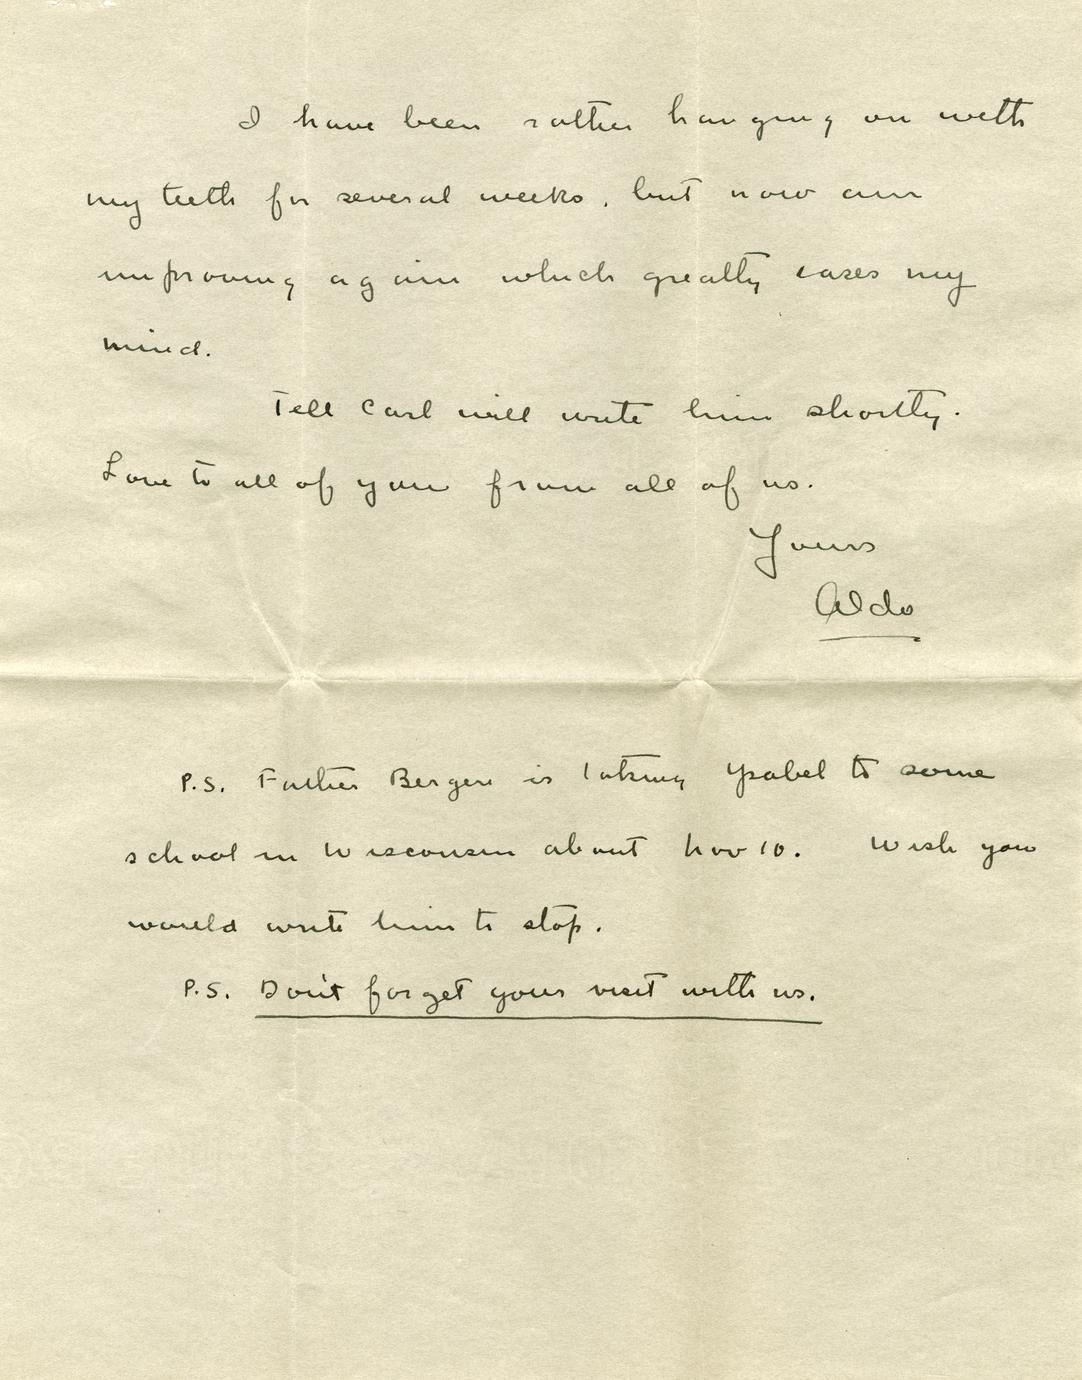 I have been rather hanging on with
my teeth for several weeks, but now am
improving again which greatly eases my
mind.
Tell Carl will write him shortly.
Love to all of you from all of us.
Yours
Aldo
P.S. Father Bergere is taking Ysabel to some
school in Wisconsin about Nov 10. Wish you
would write him to stop.
P.S. Don't forget your visit with us.